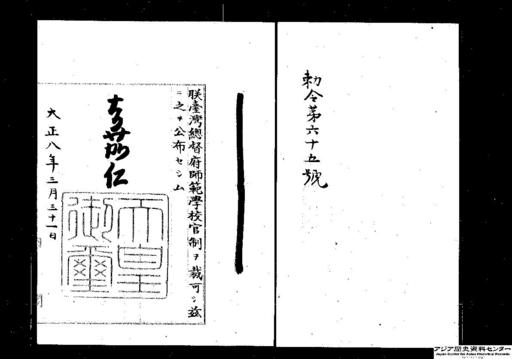 勅令第六十五號
朕臺灣總督府師範學校官制ヲ裁可シ茲
ニ之ヲ公布セシム
嘉仁
大正八年三月三十一日
天皇
御璽
内閣
アジア歴史資料センター
Japan Center for Asian Historical Records